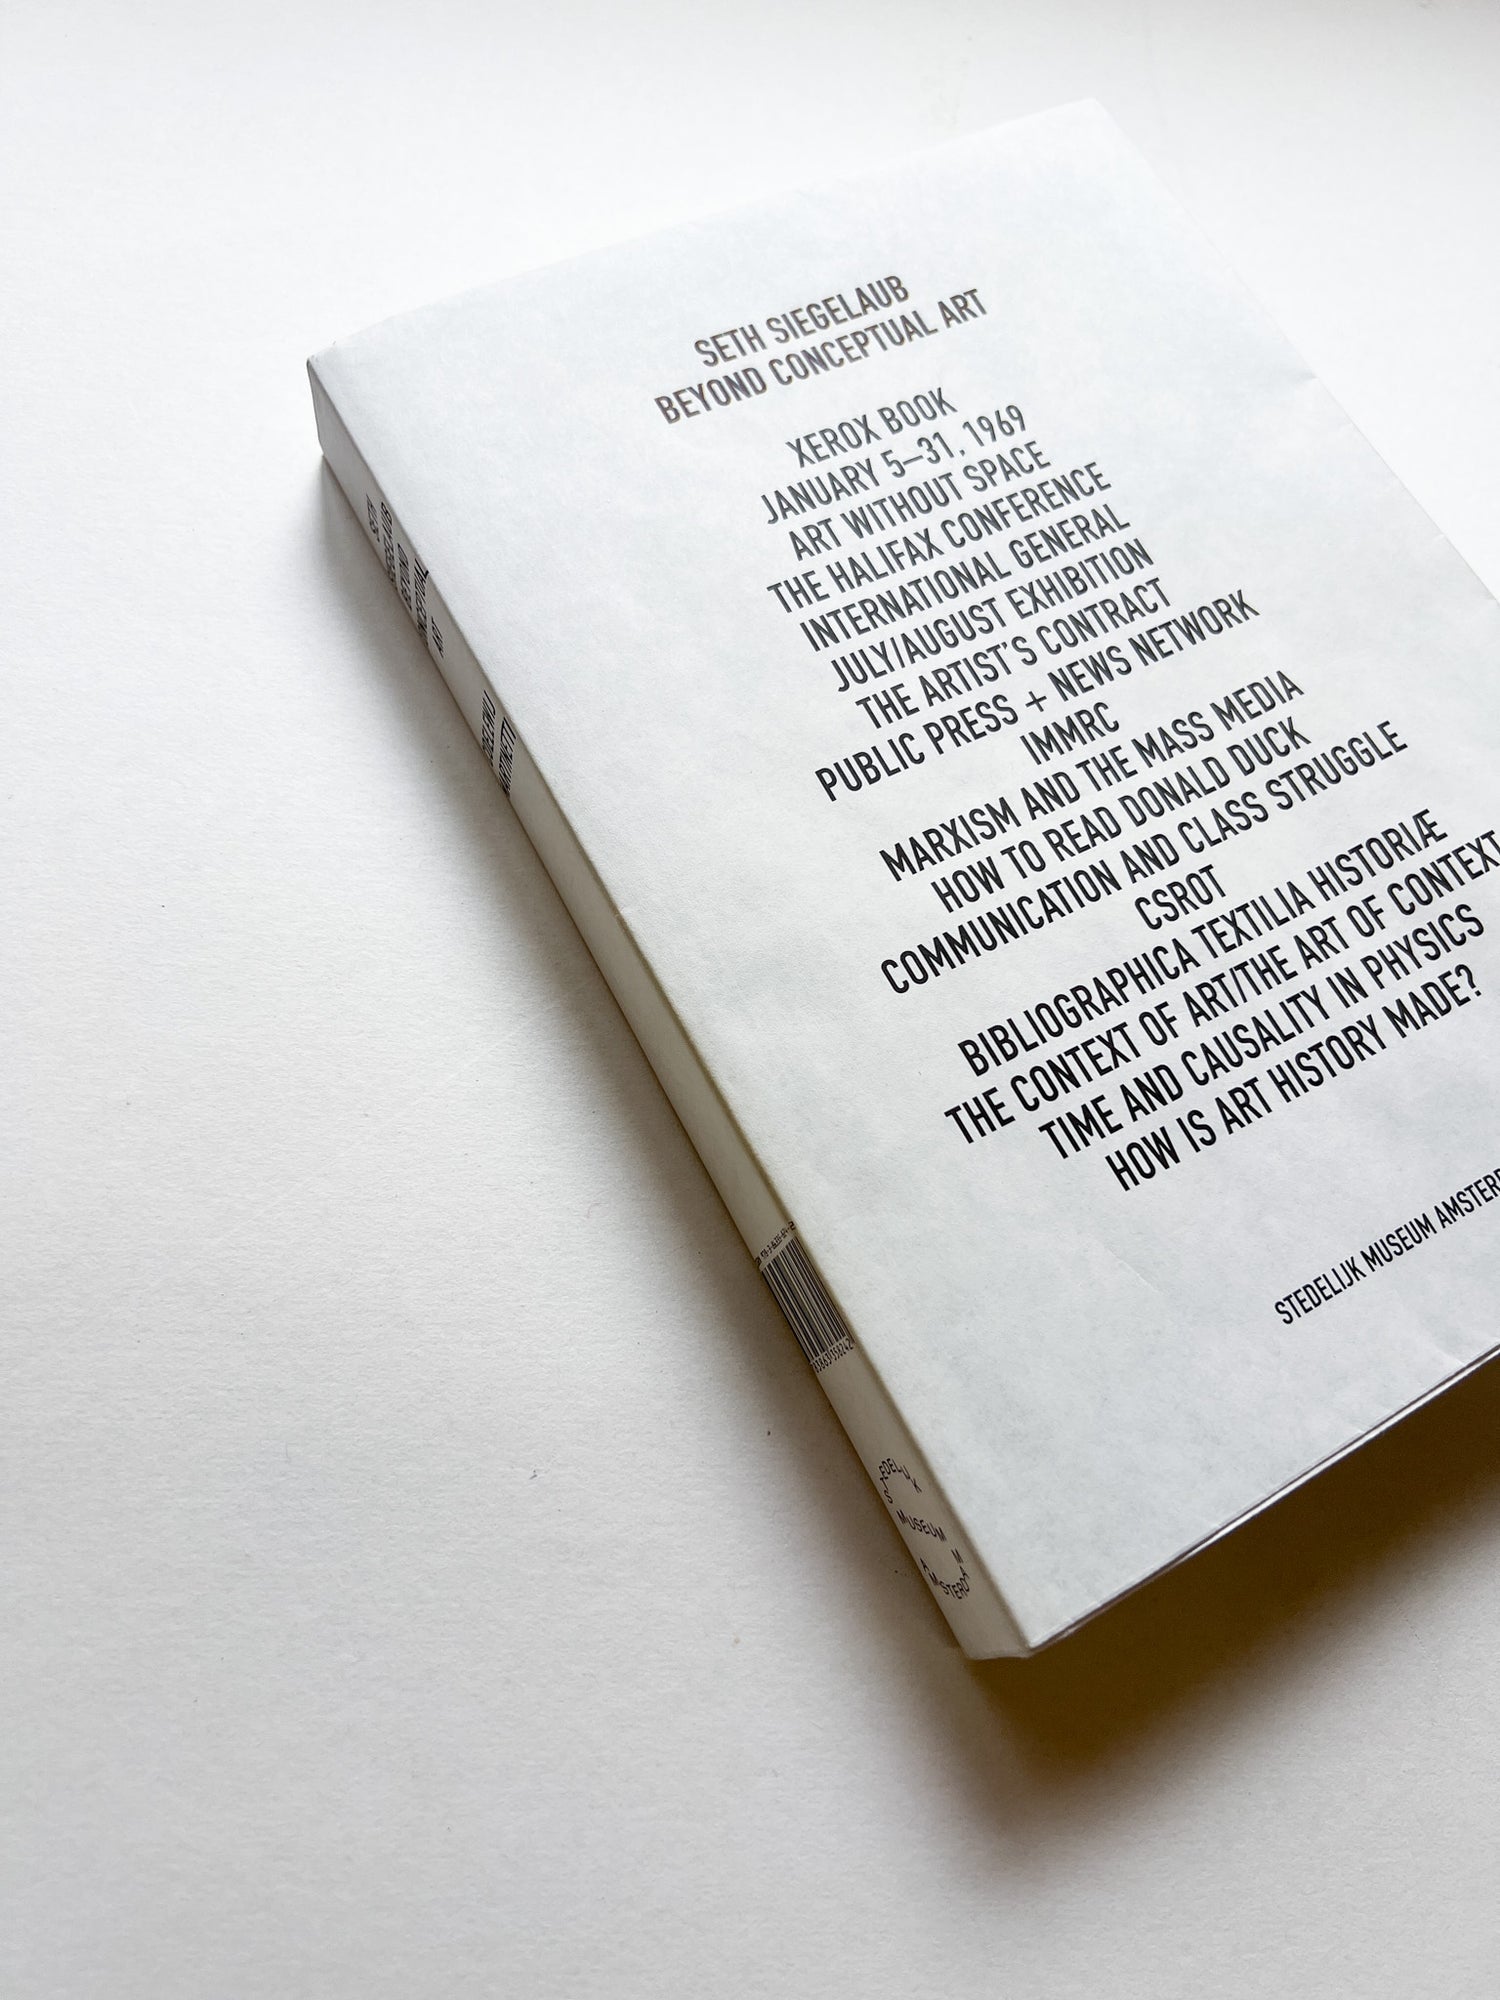 SETH SIEGELAUB
BEYOND CONCEPTUAL ART
XEROX BOOK
JANUARY 5–31, 1969
ART WITHOUT SPACE
THE HALIFAX CONFERENCE
INTERNATIONAL GENERAL
JULY/AUGUST EXHIBITION
THE ARTIST'S CONTRACT
PUBLIC PRESS + NEWS NETWORK
IMMRC
MARXISM AND THE MASS MEDIA
HOW TO READ DONALD DUCK
COMMUNICATION AND CLASS STRUGGLE
CSROT
BIBLIOGRAPHICA TEXTILIA HISTORIÆ
THE CONTEXT OF ART/THE ART OF CONTEXT
TIME AND CAUSALITY IN PHYSICS
HOW IS ART HISTORY MADE?
STEDELIJK MUSEUM
SETH
BEYOND
ART
STEDELIJK
MUSEUM
AMSTERDAM